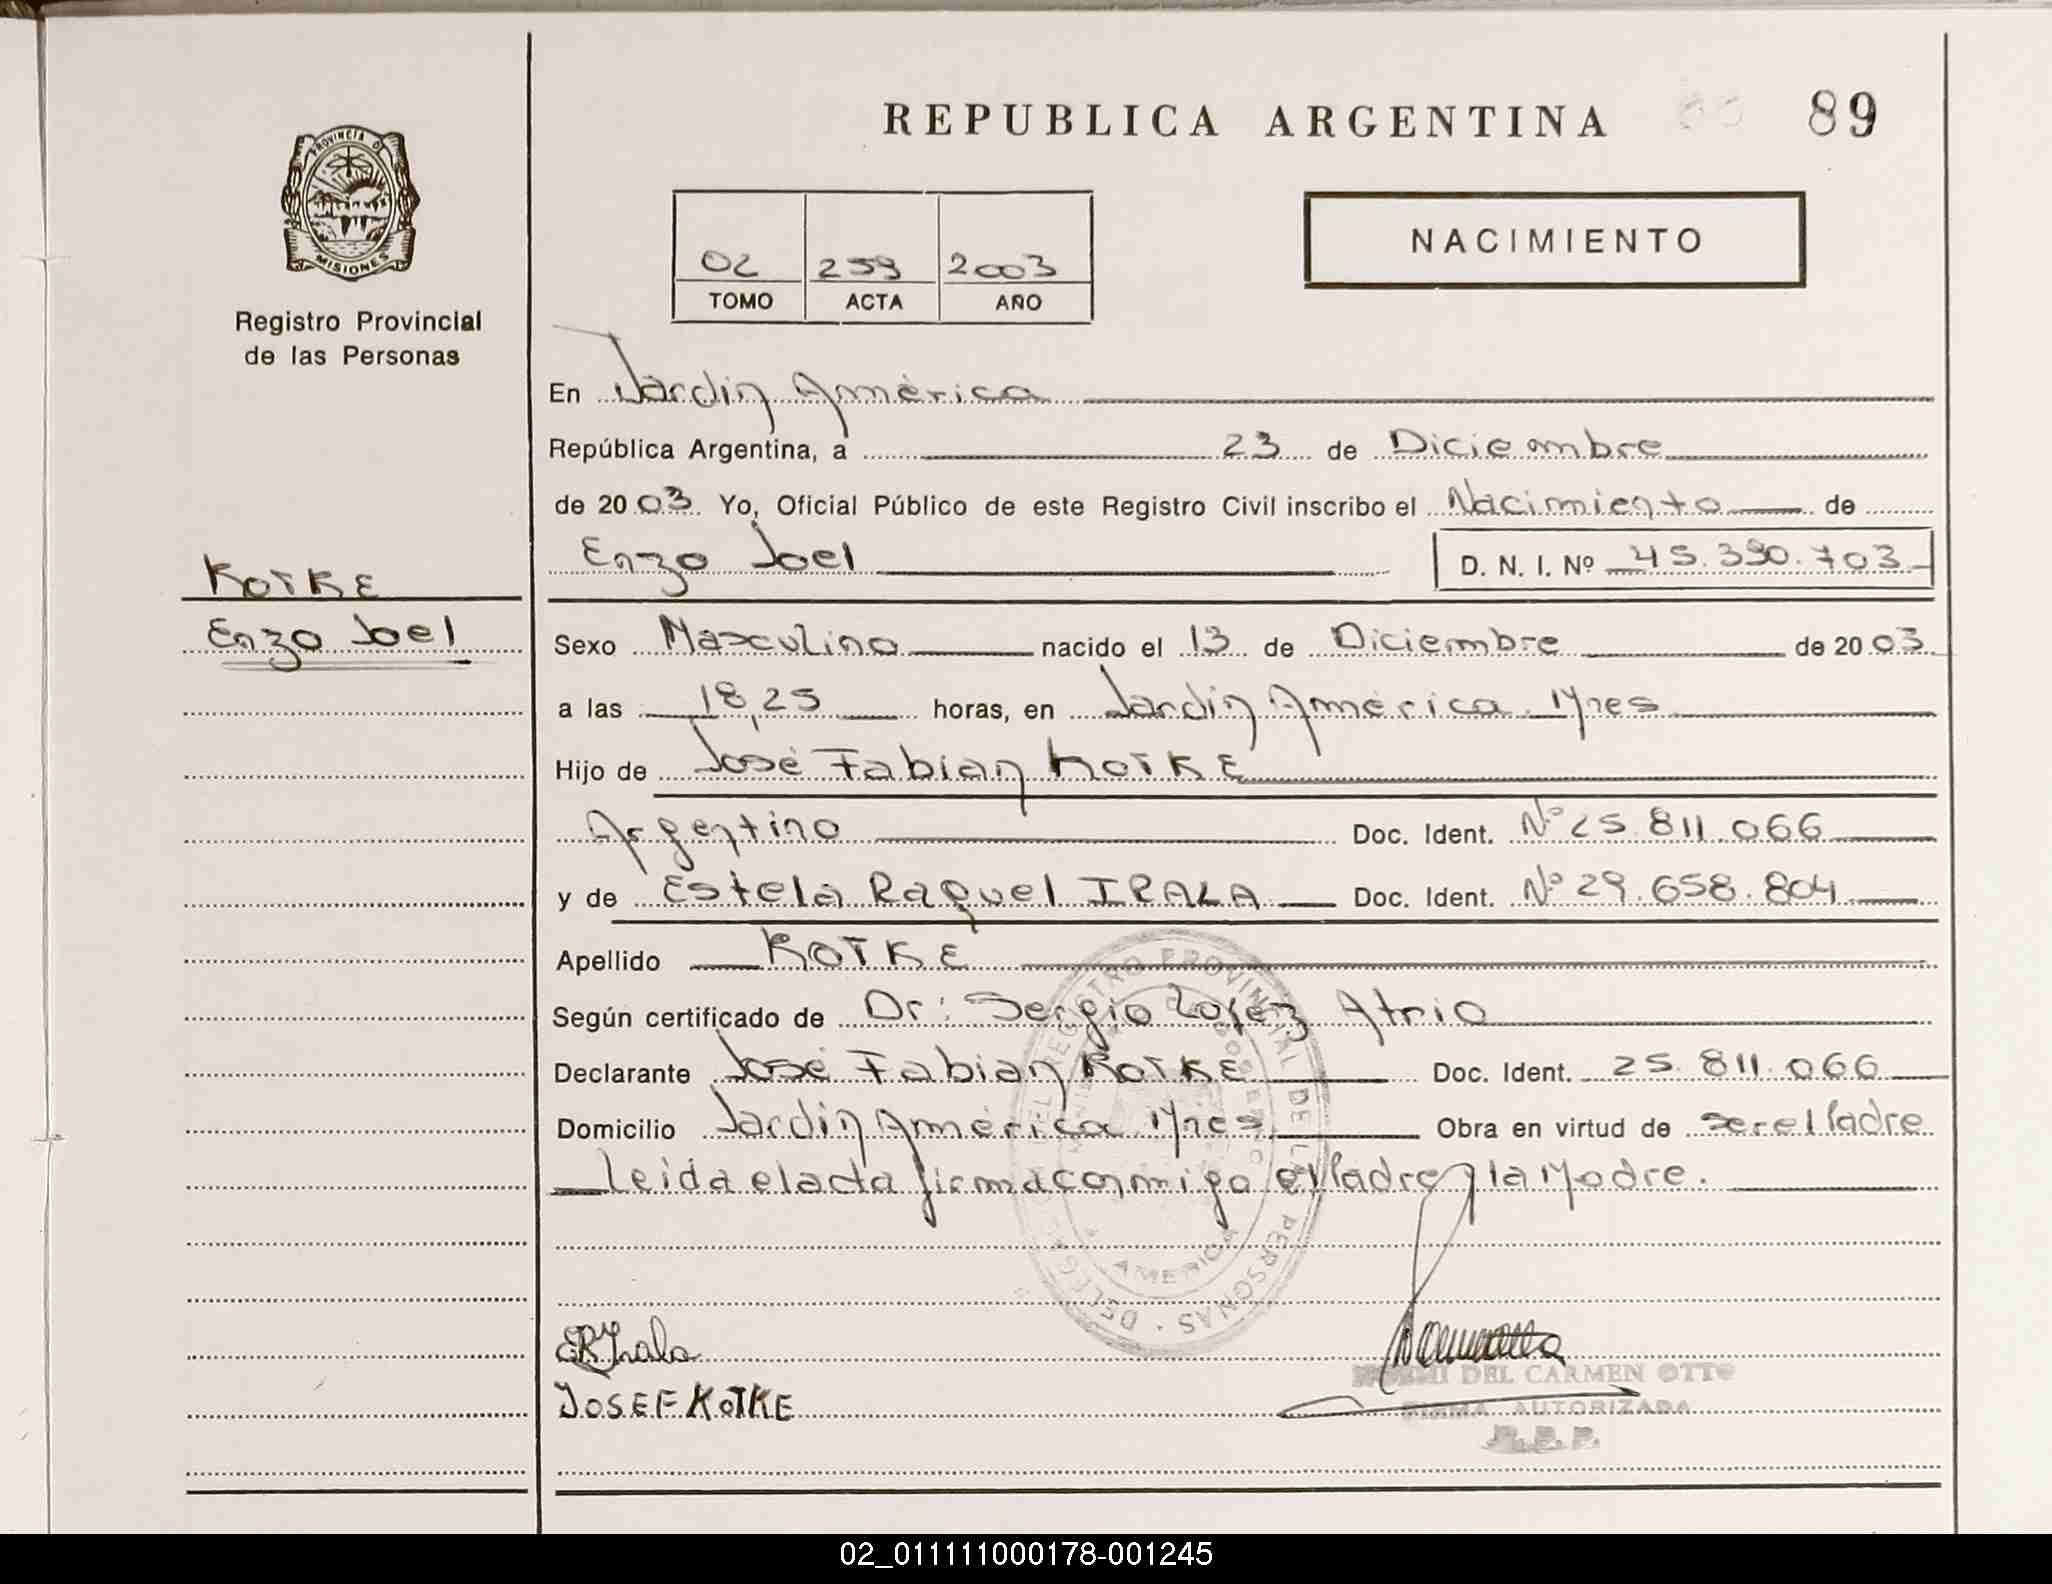 REPUBLICA ARGENTINA 89
PROVINCIA D
MISIONES
Registro Provincial
de las Personas
02 259 2003
TOMO ACTA AÑO
NACIMIENTO
En Jardin América
República Argentina, a 23 de Diciembre
de 2003. Yo, Oficial Público de este Registro Civil inscribo el Nacimiento de
Enzo Joel D. N. I. Nº 45.390.703
KOTKE
Enzo Joel
Sexo Masculino nacido el 13 de Diciembre de 2003
a las 18,25 horas, en Jardin América Mnes
Hijo de José Fabian KOTKE
Argentino Doc. Ident. Nº 25.811.066
y de Estela Raquel IRALA Doc. Ident. Nº 29.658.804
Apellido KOTKE
Según certificado de Dr: Sergio Lopez Atrio
Declarante José Fabian KOTKE Doc. Ident. 25.811.066
Domicilio Jardin América Mnes Obra en virtud de ser el Padre
Leida el acta firma conmigo el Padre y la Madre.
REGISTRO PROVINCIAL DE LAS PERSONAS
AMERICA
ERIrala
JOSEF KOTKE
DEL CARMEN OTTO
FIRMA AUTORIZADA
R.P.P.
02_011111000178-001245